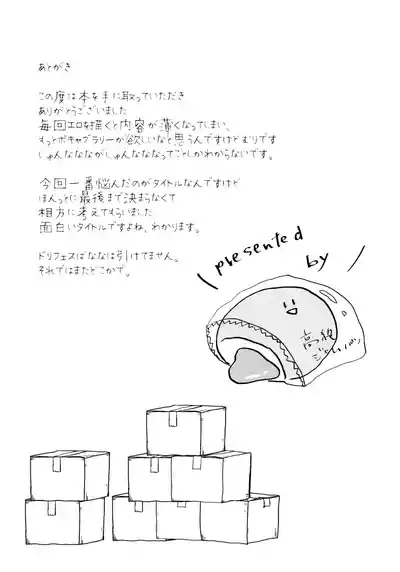 あとがき
この度は本を手に取っていただき
ありがとうございました
毎回エロを描くと内容が薄くなってしまい、
もっとボキャブラリーが欲しいなと思うんですけどむりです
しゅんななながしゅんなななってことしかわからないです。
今回一番悩んだのがタイトルなんですけど
ほんっとに最後まで決まらなくて
相方に考えてもらいました
面白いタイトルですよね、わかります。
ドリフェスばななは引けてません。
それではまたどこかで。
presented
by
高級
ジャムパン